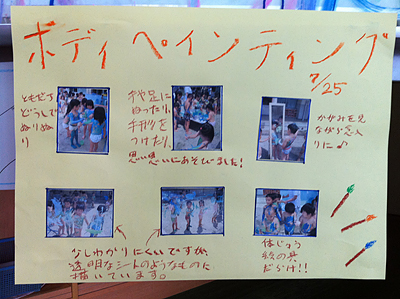 ボディペインティング
7/25
ともだち
どうしで
ぬりぬ
り
や足に
ぬったり、
手形を
つけたり、
思い思いにあそびました!
かがみを見
ながら念入
りに♪
少しわかりにくいですが、
透明なシートのようなものに
描いています。
体じゅう
絵の具
だらけ!!